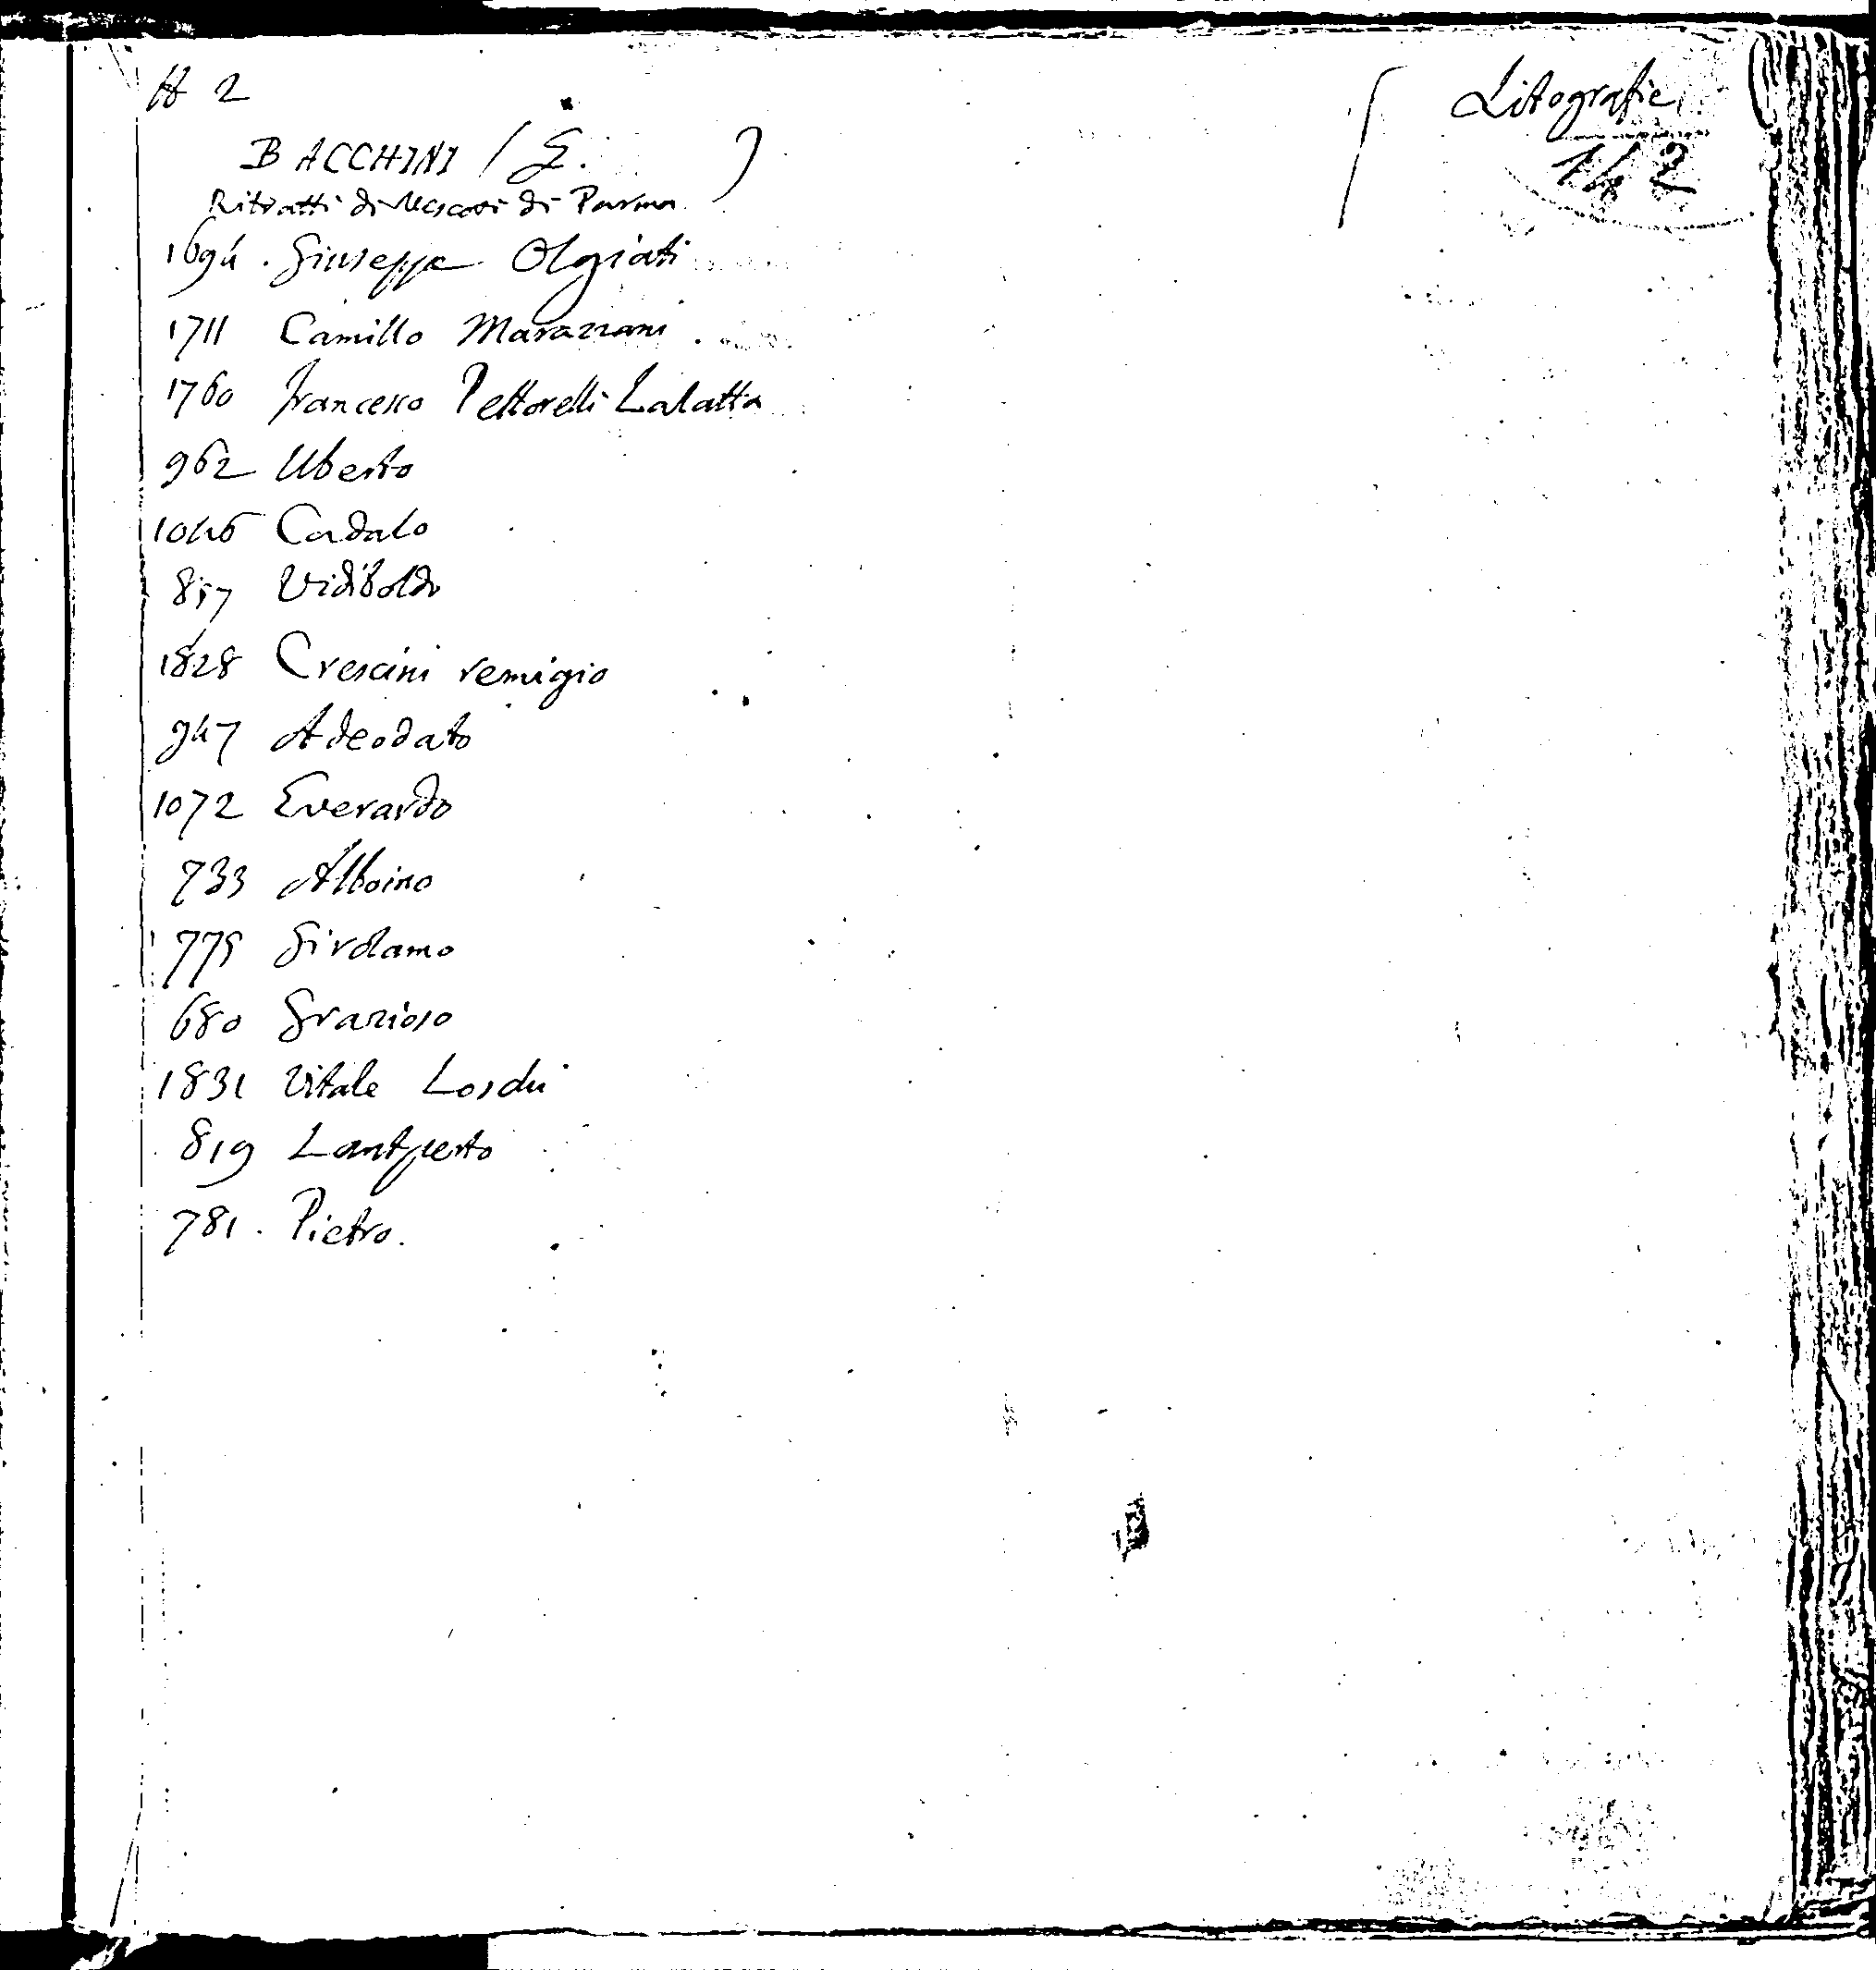 A 2
Litografie
142
BACCHINI (G. )
Ritratti di Vescovi di Parma
1694. Giuseppe Olgiati
1711 Camillo Marazzani
1760 Francesco Pettorelli Lalatta
962 Uberto
1046 Cadalo
857 Vidiboldo
1828 Crescini remigio
947 Adeodato
1072 Everardo
733 Alboino
775 Girolamo
680 Grazioso
1831 Vitale Loschi
819 Lantperto
781. Pietro.